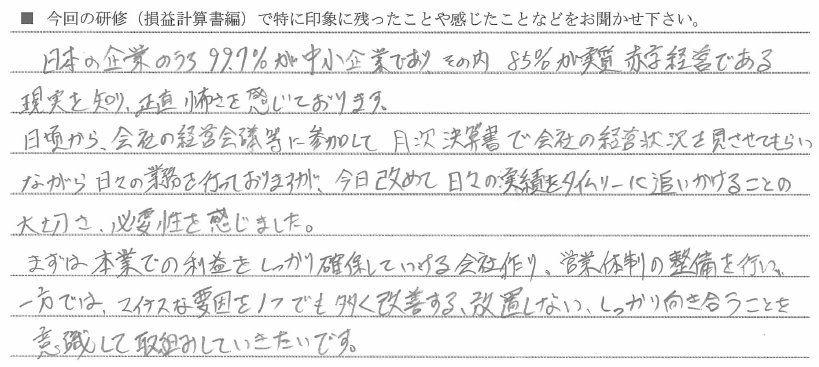 ■ 今回の研修（損益計算書編）で特に印象に残ったことや感じたことなどをお聞かせ下さい。
日本の企業のうち99.7%が中小企業であり、その内 85%が実質 赤字経営である
現実を知り、正直 怖さを感じております。
日頃から、会社の経営会議等に参加して 月次決算書で会社の経営状況を見させてもらい
ながら 日々の業務を行っておりますが、今日改めて 日々の実績をタイムリーに追いかけることの
大切さ、必要性を感じました。
まずは 本業での利益をしっかり確保していける会社作り、営業体制の整備を行い、
一方では、マイナスな要因を1つでも多く改善する、放置しない、しっかり向き合うことを
意識して取組みしていきたいです。